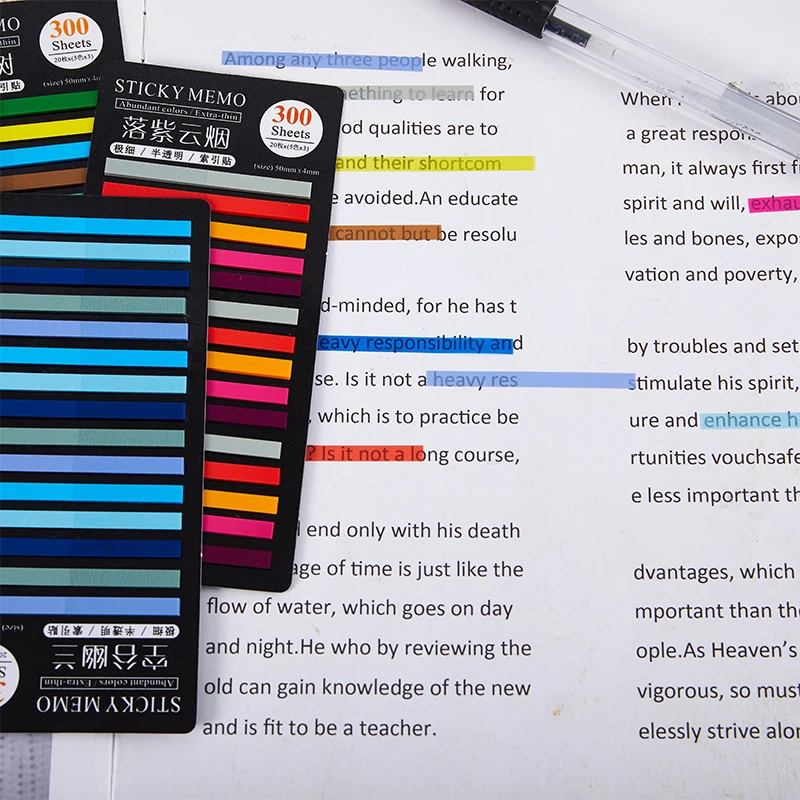 300
Sheets
20枚x(5色x3)
(size) 50mm
STICKY MEMO
Abundant colors / Extra-thin
落紫云烟
极细 / 半透明 / 索引贴
300
Sheets
20枚x(5色x3)
(size) 50mmx4mm
极细 / 半透明 / 索引贴
(size)
空谷幽兰
Abundant colors / Extra-thin
STICKY MEMO
Among any three people walking,
to learn for
od qualities are to
and their shortcom
e avoided.An educate
cannot but be resolu
d-minded, for he has t
eavy responsibility and
se. Is it not a heavy res
, which is to practice be
? Is it not a long course,
end only with his death
age of time is just like the
flow of water, which goes on day
and night.He who by reviewing the
old can gain knowledge of the new
and is fit to be a teacher.
When
a great respon
man, it always first f
spirit and will, exhau
les and bones, expo
vation and poverty,
by troubles and set
stimulate his spirit,
ure and enhance h
rtunities vouchsafe
e less important th
dvantages, which
mportant than the
ople.As Heaven's
vigorous, so must
elessly strive alon